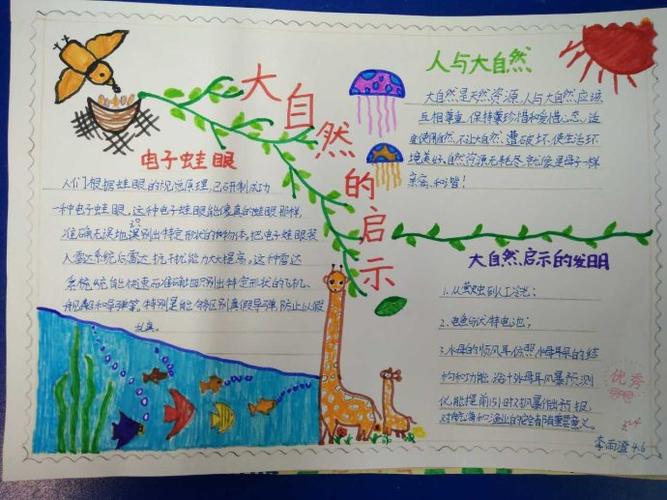 大自然的启示
电子蛙眼
人们根据蛙眼的视觉原理,已研制成功
一种电子蛙眼。这种电子蛙眼能像真的蛙眼那样,
准确无误地识别出特定形状的物体。把电子蛙眼装
入雷达系统后,雷达抗干扰能力大大提高。这种雷达
系统能快速而准确地识别出特定形状的飞机、
舰船和导弹等。特别是能够区别真假导弹,防止以假
乱真。
人与大自然
大自然是天然资源,人与大自然应该
互相尊重,保持着珍惜和爱惜之心,适
度使用自然,不让大自然遭破坏,使生活环
境美好,自然资源无耗尽,就像是母子一样
亲密、和谐!
大自然启示的发明
1.从萤火虫到人工冷光;
2.电鱼与伏特电池;
3.水母的顺风耳,仿照水母耳朵的结
构和功能,设计水母耳风暴预测
仪,能提前15小时对风暴作出预报,
对航海和渔业的安全都有重要意义。
优秀
李雨澄 4.6